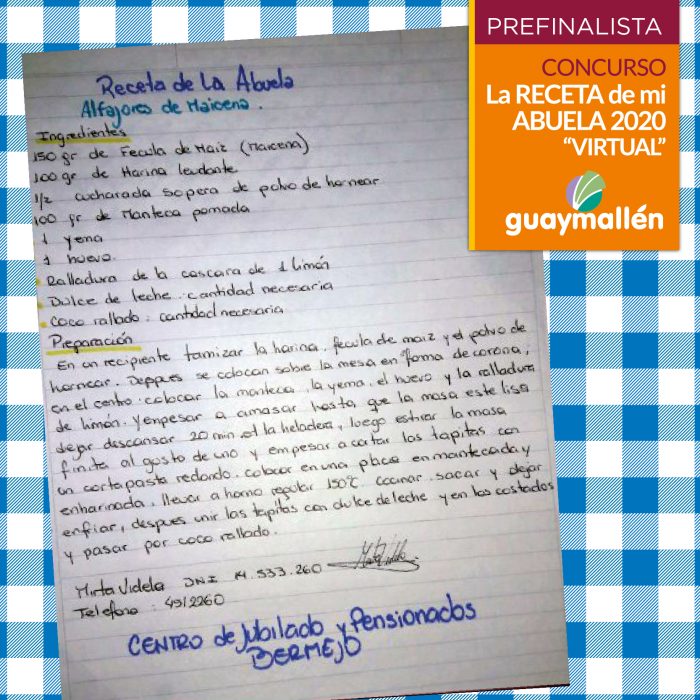 PREFINALISTA
CONCURSO
La RECETA de mi
ABUELA 2020
“VIRTUAL”
guaymallén
Receta de La Abuela
Alfajores de Maicena.
Ingredientes
150 gr de Fecula de Maiz (Maicena)
100 gr de Harina leudante
1/2 cucharada sopera de polvo de hornear
100 gr de Manteca pomada
1 yema
1 huevo
Ralladura de la cascara de 1 limón
Dulce de leche: cantidad necesaria
Coco rallado: cantidad necesaria
Preparación
En un recipiente tamizar la harina, fecula de maiz y el polvo de
hornear. Deppues se colocan sobre la mesa en forma de corona,
en el centro colocar la manteca, la yema, el huevo y la ralladura
de limón. y enpesar a amasar hasta que la masa este lisa
dejar descansar 20 min la heladera, luego estirar la masa
finita al gusto de uno y empesar a cortar las tapitas con
un cortapasta redondo. colocar en una placa enmantecada y
enharinada, llevar a horno regular 150°C cocinar, sacar y dejar
enfriar, despues unir las tapitas con dulce de leche y en los costados
y pasar por coco rallado.
Mirta Videla DNI 14.533.260
Telefono: 4912260
CENTRO de Jubilado y Pensionados
BERMEJO